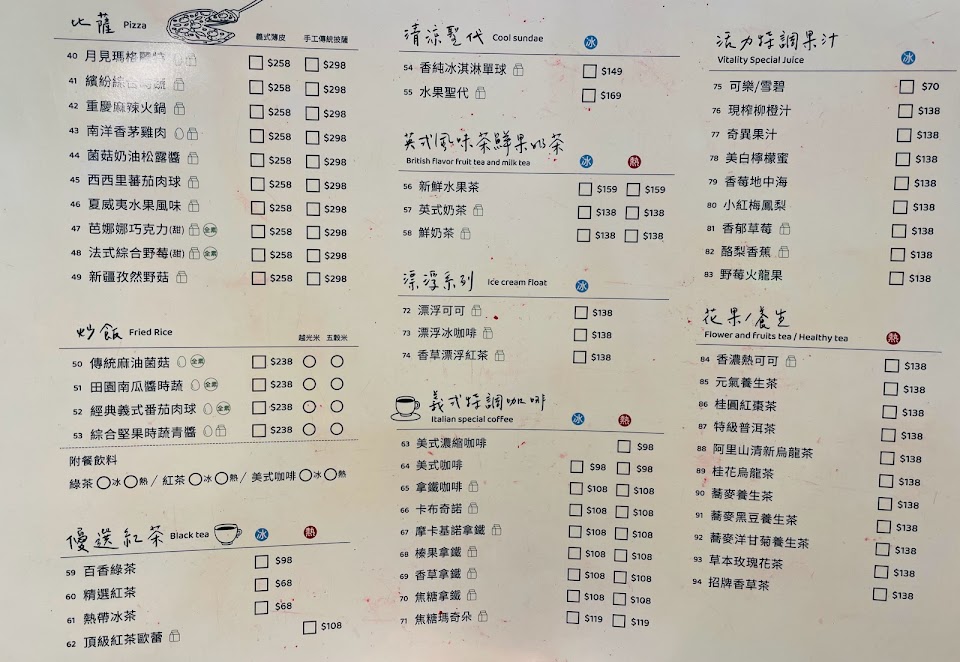 比薩 Pizza
義式薄皮 手工傳統披薩
40 月見瑪格 $258 $298
41 繽紛綜合 蔬 $258 $298
42 重慶麻辣火鍋 $258 $298
43 南洋香茅雞肉 $258 $298
44 菌菇奶油松露醬 $258 $298
45 西西里番茄肉球 $258 $298
46 夏威夷水果風味 $258 $298
47 芭娜娜巧克力(甜) 全素 $258 $298
48 法式綜合野莓(甜) 全素 $258 $298
49 新疆孜然野菇 $258 $298
炒飯 Fried Rice
越光米 五穀米
50 傳統麻油菌菇 全素 $238
51 田園南瓜醬時蔬 全素 $238
52 經典義式番茄肉球 全素 $238
53 綜合堅果時蔬青醬 $238
附餐飲料
綠茶 冰 熱 / 紅茶 冰 熱 / 美式咖啡 冰 熱
優選紅茶 Black tea 冰 熱
59 百香綠茶 $98
60 精選紅茶 $68
61 熱帶冰茶 $68
62 頂級紅茶歐蕾 $108
清涼聖代 Cool sundae 冰
54 香純冰淇淋單球 $149
55 水果聖代 $169
英式風味茶鮮果奶茶
British flavor fruit tea and milk tea 冰 熱
56 新鮮水果茶 $159 $159
57 英式奶茶 $138 $138
58 鮮奶茶 $138 $138
漂浮系列 Ice cream float 冰
72 漂浮可可 $138
73 漂浮冰咖啡 $138
74 香草漂浮紅茶 $138
義式特調咖啡
Italian special coffee 冰 熱
63 美式濃縮咖啡 $98
64 美式咖啡 $98 $98
65 拿鐵咖啡 $108 $108
66 卡布奇諾 $108 $108
67 摩卡基諾拿鐵 $108 $108
68 榛果拿鐵 $108 $108
69 香草拿鐵 $108 $108
70 焦糖拿鐵 $108 $108
71 焦糖瑪奇朵 $119 $119
活力特調果汁
Vitality Special Juice 冰
75 可樂/雪碧 $70
76 現榨柳橙汁 $138
77 奇異果汁 $138
78 美白檸檬蜜 $138
79 香莓地中海 $138
80 小紅梅鳳梨 $138
81 香郁草莓 $138
82 酪梨香蕉 $138
83 野莓火龍果 $138
花果/養生
Flower and fruits tea / Healthy tea 熱
84 香濃熱可可 $138
85 元氣養生茶 $138
86 桂圓紅棗茶 $138
87 特級普洱茶 $138
88 阿里山清新烏龍茶 $138
89 桂花烏龍茶 $138
90 蕎麥養生茶 $138
91 蕎麥黑豆養生茶 $138
92 蕎麥洋甘菊養生茶 $138
93 草本玫瑰花茶 $138
94 招牌香草茶 $138